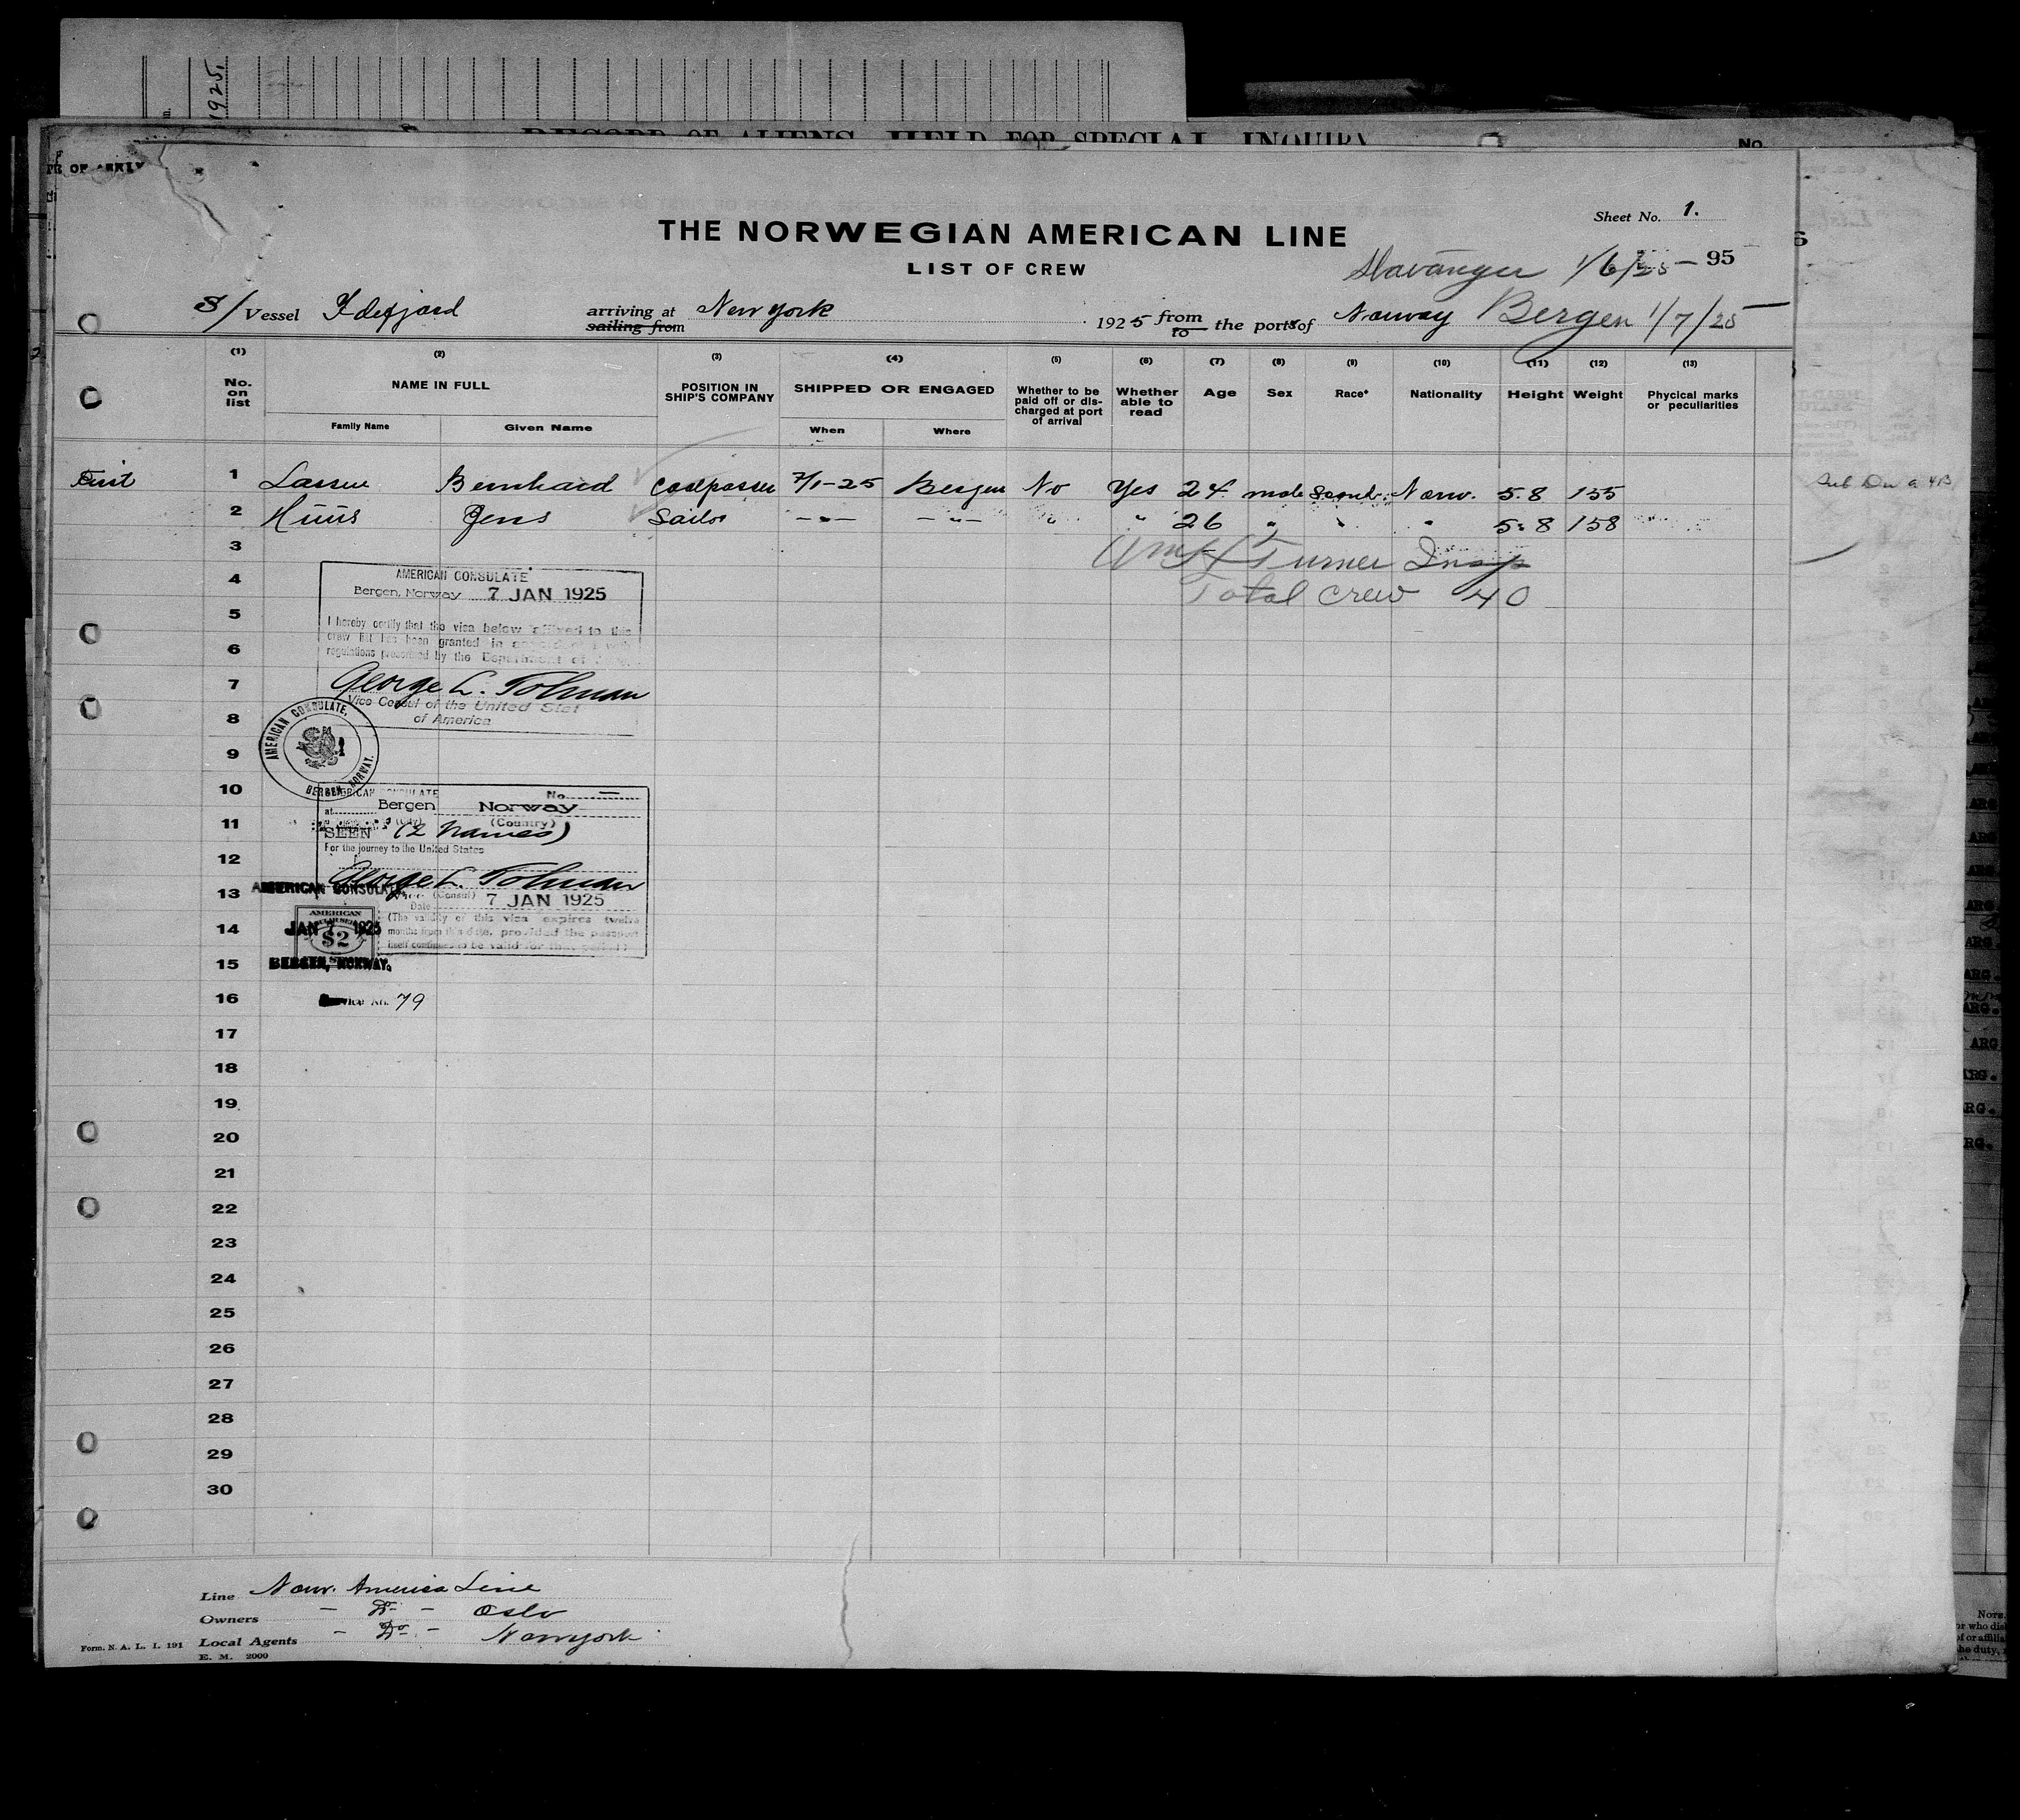 1925.
RECORD OF ALIENS HELD FOR SPECIAL INQUIRY
No.
Sheet No. 1.
THE NORWEGIAN AMERICAN LINE
LIST OF CREW
Stavanger 1/6/25 - 95
S/Vessel Idefjord arriving at New York 1925 from the ports of Norway Bergen 1/7/25
sailing from to
(1) (2) (3) (4) (5) (6) (7) (8) (9) (10) (11) (12) (13)
No. on list NAME IN FULL POSITION IN SHIP'S COMPANY SHIPPED OR ENGAGED Whether to be paid off or discharged at port of arrival Whether able to read Age Sex Race* Nationality Height Weight Phycical marks or peculiarities
Family Name Given Name When Where
1 Lassen Bernhard Coalpasser 7/1-25 Bergen No Yes 24 male Scand. Norw. 5.8 155
2 Huus Jens Sailor -"- -"- " " 26 " " " 5.8 158
3 Wm H Turner Insp
4 Total Crew 40
5
6
7
8
9
10
11
12
13
14
15
16
17
18
19
20
21
22
23
24
25
26
27
28
29
30
AMERICAN CONSULATE
Bergen, Norway 7 JAN 1925
I hereby certify that the visa below affixed to this
crew list has been granted in
regulations prescribed by the Department of
George L. Tolman
Vice Consul of the United Stat
of America
AMERICAN CONSULATE, BERGEN, NORWAY.
AMERICAN CONSULATE No. —
at Bergen Norway
(City) (Country)
SEEN (2 names)
For the journey to the United States
George L. Tolman
(Consul)
Date 7 JAN 1925
(The validity of this visa expires twelve
months from this date, provided the passport
itself continues to be valid for that period)
AMERICAN CONSULATE,
JAN 7 1925
BERGEN, NORWAY.
AMERICAN
$2
Service No. 79
Line Norw. America Line
Owners - Do - Oslo
Local Agents - Do - New york
Form. N. A. L. I. 191
E. M. 2000